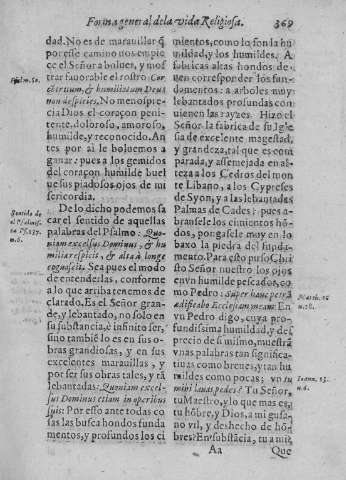 Forma general de la vida Religiosa. 369
dad. No es de marauillar q̃
por esse camino nos empie
ce el Señor a boluer, y mos
trar fauorable el rostro: Cor
contritum, & humiliatum Deus
non despicies. No menospre
cia Dios el coraçon peni-
tente, doloroso, amoroso,
humilde, y reconocido. An
tes por ai le boluemos a
ganar: pues a los gemidos
del coraçon humilde buel
ue sus piadosos ojos de mi
sericordia.
De lo dicho podemos sa
car el sentido de aquellas
palabras del Psalmo: Quo-
niam excelsus Dominus, & hu
milia respicit, & alta à longe
cognoscit. Sea pues el modo
de entenderlas, conforme
a lo que arriba tenemos de
clarado. Es el Señor gran-
de, y lebantado, no solo en
su substancia, è infinito ser,
sino tambiẽ lo es en sus o-
bras grandiosas, y en sus
excelentes marauillas, y
por ser sus obras tales, y tã
lebantadas: Quoniam excel-
sus Dominus etiam in operibus
suis: Por esso ante todas co
sas las busca hondos funda
mentos, y profundos los ci
Psalm. 50.
Sentido de
el Psalmis-
ta Ps. 137.
n. 6.
mientos, como lo son la hu
mildad, y los humildes. A
fabricas altas hondos de-
uen corresponder los fun-
damentos: a arboles muy
lebantados profundas con
uienen las rayzes. Hizo el
Señor la fabrica de su Igle
sia de excelente magestad,
y grandeza, tal que es com
parada, y assemejada en al-
teza a los Cedros del mon
te Libano, a los Cypreses
de Syon, y a las lebantadas
Palmas de Cades: pues a-
bransele los cimientos hõ-
dos, pongasele muy en lo
baxo la piedra del funda-
mento. Para esto puso Chris
to Señor nuestro los ojos
en vn humilde pescador, co
mo Pedro: Super hanc petrã
ædificabo Ecclesiam meam: En
vn Pedro digo, cuya pro-
fundissima humildad, y des
precio de si mismo, muestrã
vnas palabras tan significa
tiuas como breues, y tan hu
mildes como pocas; vn tu
mihi lauas pedes? Tu Señor,
tu Maestro, y lo que mas es,
tu hõbre, y Dios, a mi gusa-
no vil, y deshecho de hõ-
bres? En substãcia, tu a mi?
Matth. 16
n. 18.
Ioann. 13.
n. 6.
Aa
Que